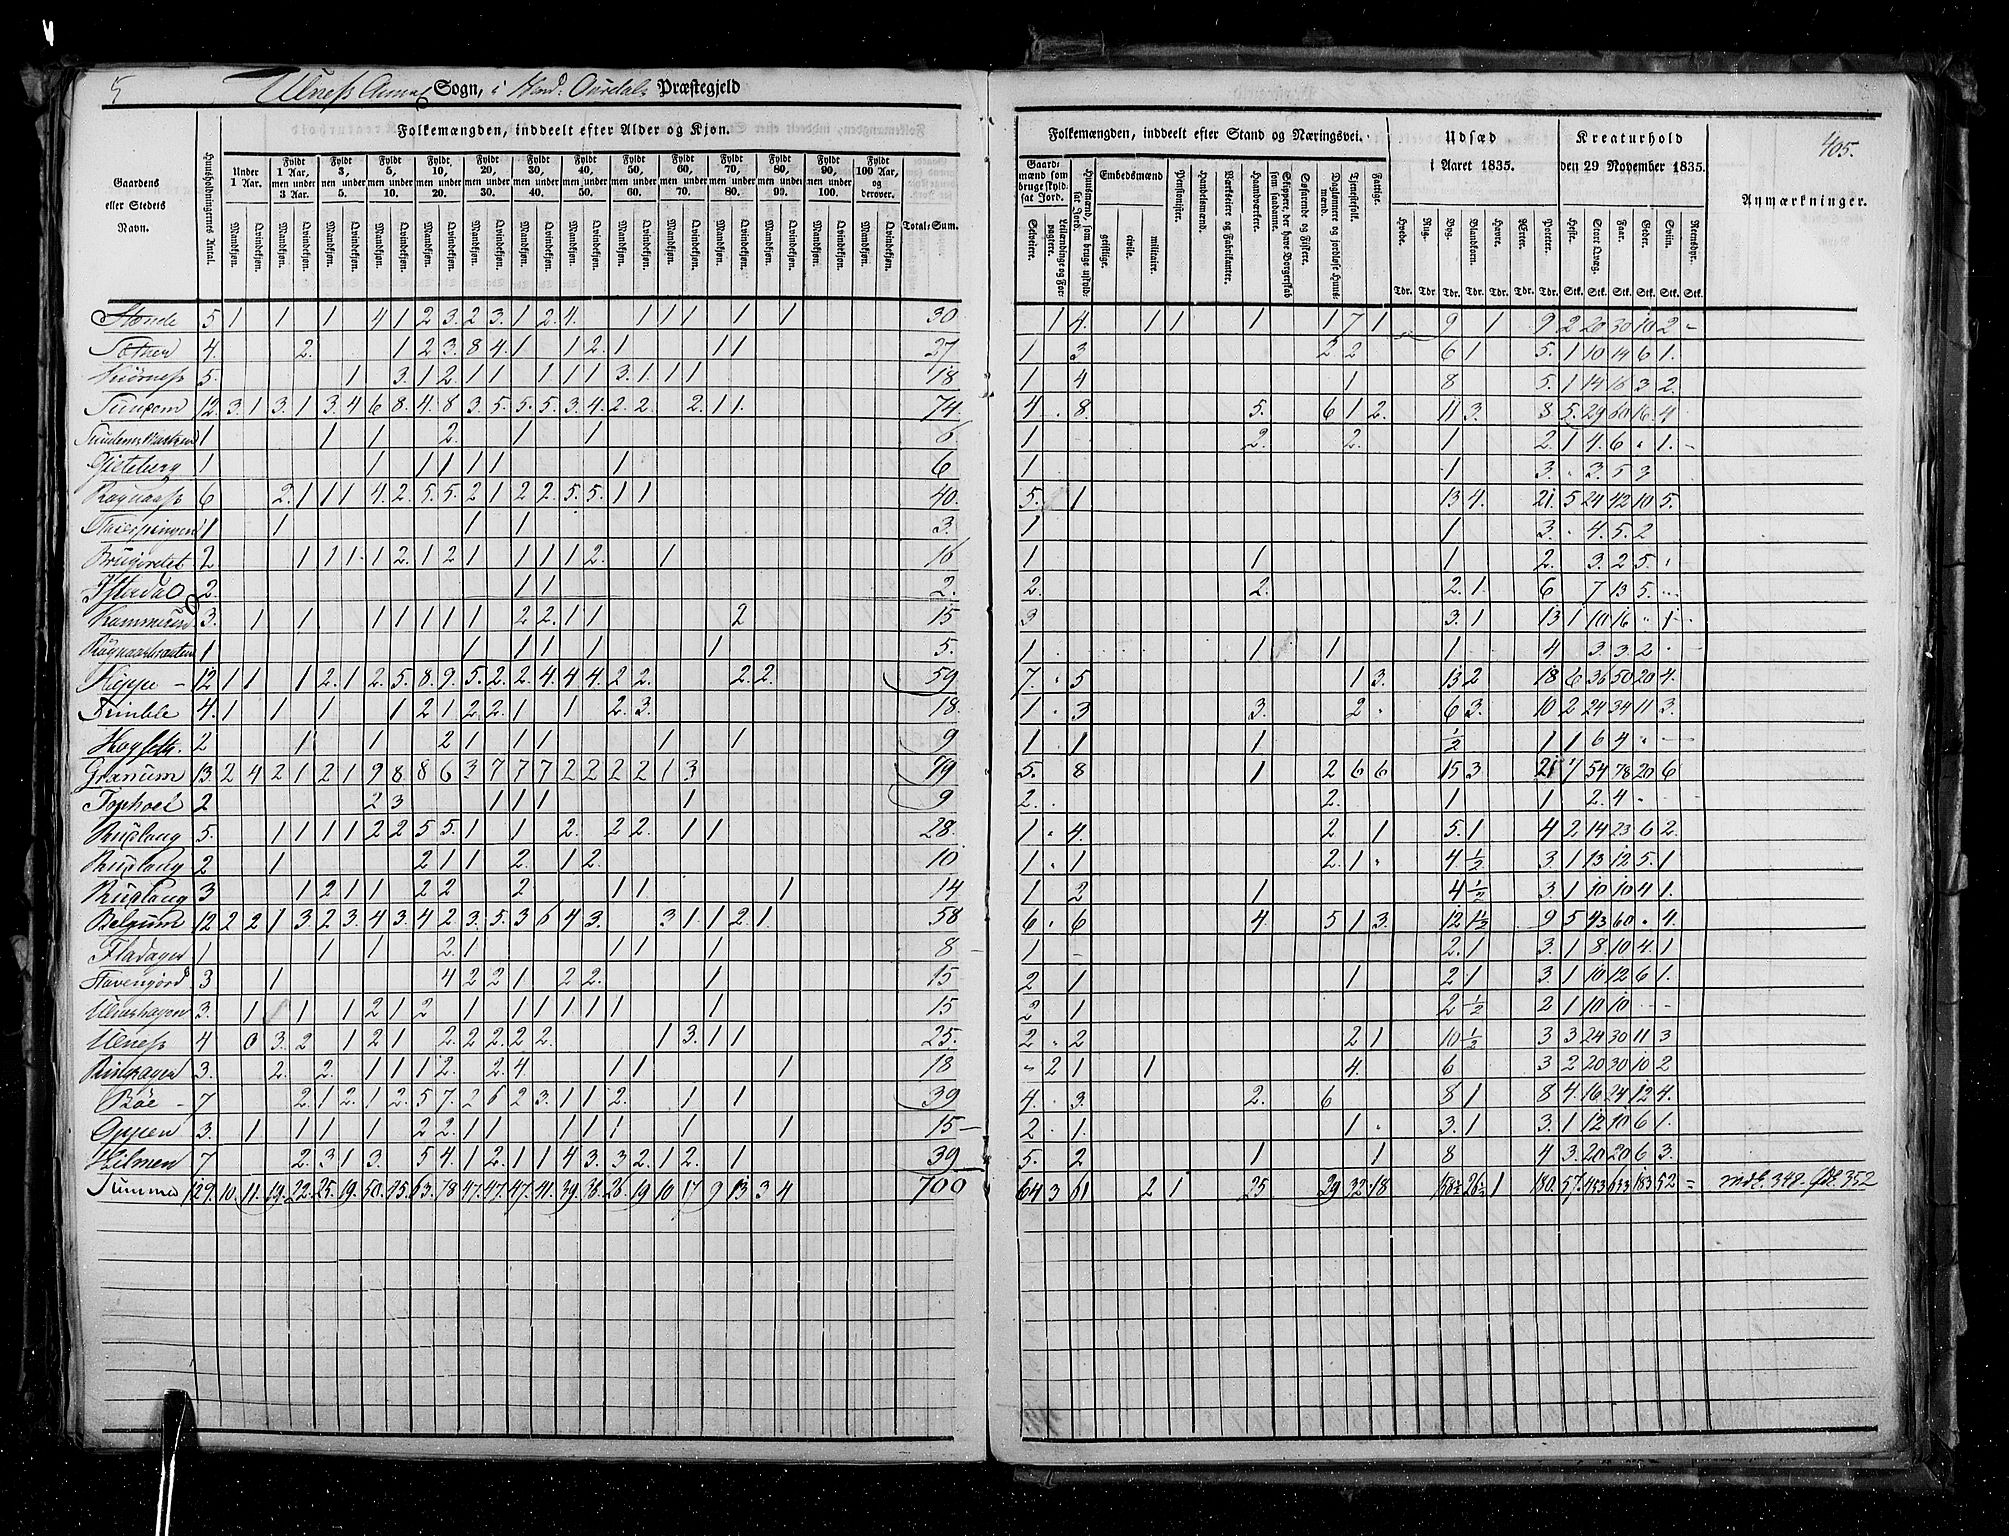 5
Ulness Annex Sogn, i Nord Ourdals Præstegjeld
405.
Gaardens eller Stedets Navn.
Huusholdningernes Antal.
Folkemængden, inddeelt efter Alder og Kjøn.
Under 1 Aar.
Fyldt 1 Aar, men under 3 Aar.
Fyldt 3, men under 5.
Fyldt 5, men under 10.
Fyldt 10, men under 20.
Fyldt 20, men under 30.
Fyldt 30, men under 40.
Fyldt 40, men under 50.
Fyldt 50, men under 60.
Fyldt 60, men under 70.
Fyldt 70 Aar, men under 80.
Fyldt 80 Aar, men under 90.
Fyldt 90, men under 100.
Fyldt 100 Aar, og derover.
Mandkjøn. Qvindekjøn.
Total-Sum.
Folkemængden, inddeelt efter Stand og Næringsvei.
Gaardmænd som bruge skyldsat Jord.
Selveiere.
Leilændinge og Forpagtere.
Huusmænd, som bruge uskyldsat Jord.
Embedsmænd
geistlige.
civile.
militaire.
Pensionister.
Handelsmænd.
Værkeiere og Fabrikanter.
Haandværkere.
Skippere, der have Borgerskab som saadanne.
Søfarende og Fiskere.
Daglønnere og jordløse Huusmænd.
Tjenestefolk.
Fattige.
Udsæd i Aaret 1835.
Hvede. Rug. Byg. Blandkorn. Havre. Ærter. Poteter.
Tdr. Tdr. Tdr. Tdr. Tdr. Tdr. Tdr.
Kreaturhold den 29 November 1835.
Heste. Stort Qvæg. Faar. Geder. Sviin. Reensdyr.
Stk. Stk. Stk. Stk. Stk. Stk.
Anmærkninger.
Strande 5 1 1 1 4 1 2 3. 2 3. 1 2. 4. 1 1 1 1 1 30 1 4. 1 1 1 1 7 1 9 1 9 2 20 30 10 2
4. 2. 1 2 3. 8 4. 1 1 2. 1 1 1 27 1 3 2 2 6 1 5. 1 10 14 6 1.
5. 1 3. 1 2. 1 1 1 1 1 3. 1. 1 1 18 1 4 1 8 5. 1 14 16 3 2.
12. 3. 1 3. 1 3. 4 6 8. 4. 8 3. 5. 5. 5. 3. 4. 2. 2. 2. 1 1. 74. 4. 8. 5. 6 1 2. 11 3. 8 5. 29 60 16. 4
1 1 1 2. 1 1 6 1 2. 2. 1 2. 1 4. 6 1.
Gieteberg 1 1 1 1 1 1 1 6 1 1 3. 3. 5 3
Rognaass 6 2. 1 1 1 4. 2. 5. 5. 2 1 2 2. 5. 5. 1 1 40. 5. 1 13 4. 21. 5 24 42 10 5.
1 1 1 1 3. 1 1 3. 4. 5. 2
2 1 1 1 1. 1 2. 1 2 1 1 1 1 2. 1 16 1 1 1 2. 3. 2 5.
2. 1 1 2. 2. 2. 2. 1. 6 7 13 5.
3. 1 1 1 1 1 1 1 2 2. 1 1 2 15 3 3. 1 13 1 10 16 1
1 1 1 1 1 1 5. 1 1 1 1 4 3. 3. 2
12 1 1 1 2. 1 2. 5. 8. 9. 5. 2. 2. 4. 4 4. 2 2. 2. 2. 59 7. 5 1 3. 13 2 18 6 36 50 20 4.
4. 1 1 1 1 2 1 2 2. 1 1 2. 3. 18. 1 3 3. 2 6 3. 10 2 24 34 11 3.
2 1 1 2 1 1 1 1 1 9 1 1 1 ½ 1 1 6 4
Granum 13 2 4 2 1 2 1 9 8 8 6 3 7 7 7 2 2 2 2 1 3 79 5. 8 1 2 6 6 15 3 21 7 54 78 20 6
2 2 3 1 1 1 1 9 2. 2. 1 1 2. 4
Rudlang 5. 1 1 1 1 2 2 5 5. 1 1 2. 2 2. 1 1 28. 1 4. 2 1 5. 1 4 2 14 23 6 2.
Rudlang 2 1 2 1 1 2. 1 2. 10 1 1 2 1 4 ½ 3. 1 13 12. 5. 1
Rudlang 3 1 2 1 1 2 2 2 1 1 1 14 1 2 1 4 ½ 3. 1 10 10 4 1.
Belgum 12 2 2 1 3. 2 3. 4 3. 4 2. 3. 5. 3 6 4 3. 3 1 1 2 1. 58 6 6 4. 5 1 3. 12 1½ 9 5 43 60 4.
Fladager 1 1 1 2. 1 1 1 1 1 8 1 2. 1 3. 1 8. 10 4. 1
3 1 4 2 2 1 2 2. 1 15 2 1 1 2 1 3. 1 10 12 6 1.
Ulneshagen 3. 1 1 1 2 1 2 1 1 1 1 1 1 1 15 2 1 2 ½ 2 1 10 10
Ulness 4 0 3. 2 1 2 1 2. 2. 2. 2 2. 1 3. 1 1 25. 2 2 2 1 10 ½ 3 3 24 30 11 3
3. 2. 2. 1 1 1 2. 2 4 1 1 1 18 2 1 1 4. 6 3 2 20 30 10 2
Bøe 7 2. 1 2. 1 2. 5 7. 2 6 2 3. 1 1 2. 1 1 39 4. 3. 2. 6 8 1 8 4. 16 24 12 4.
3. 1 1 1 1 2 2. 1 1 1 1 1 1 1 15 2 1. 1 3. 1 3. 1 12 10 6 1.
Hilmen 7 2. 3 1 3. 5 4. 1 2. 1 1 4 3. 3 2. 1 2. 1 39 5. 2 1 1 8 4 3. 20 20 6 3.
Summa 129. 10. 11. 19. 22. 25. 19. 50. 45. 63. 78 47. 47. 47. 41. 39 36. 26. 19 10 17 9 13 3 4 700 64 3 61 2 1 25 29 32 18 158½ 26½ 1 180. 57. 433 633 183 52 Mdk. 348. Qdk. 352